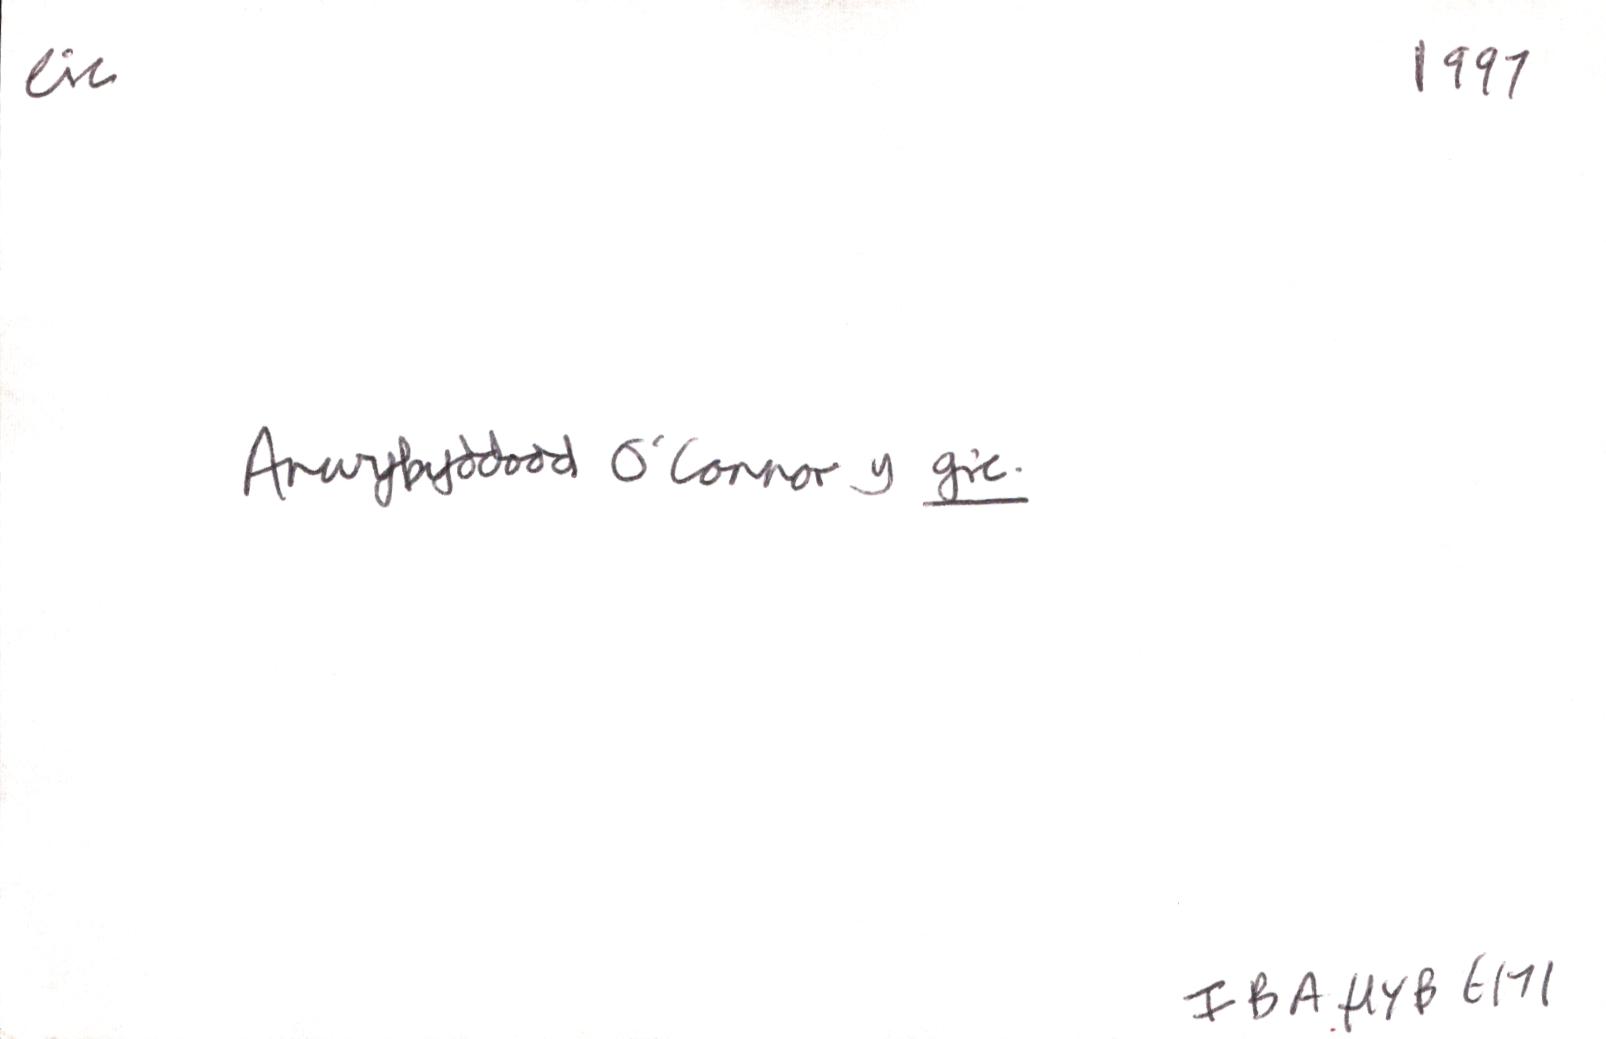 cic 1997
Anwybyddodd O'Connor y gic.
IBA MYB 6171